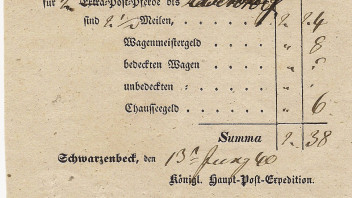 für 2 Extra-Post-Pferde bis
sind 2 1/2 Meilen, 2 24
Wagenmeistergeld " 8
bedeckten Wagen "
unbedeckten "
Chausseegeld " 6
Summa 2. 38
Schwarzenbeck, den 13 Juny 40
Königl. Haupt-Post-Expedition.